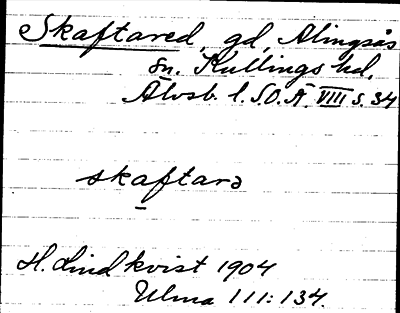 Skaftared, gd, Alingsås
sn. Kullings hd,
Älvsb. l. S.O.Ä VIII s. 34
skaftarə
H. Lindkvist 1904
Ulma 111:134.